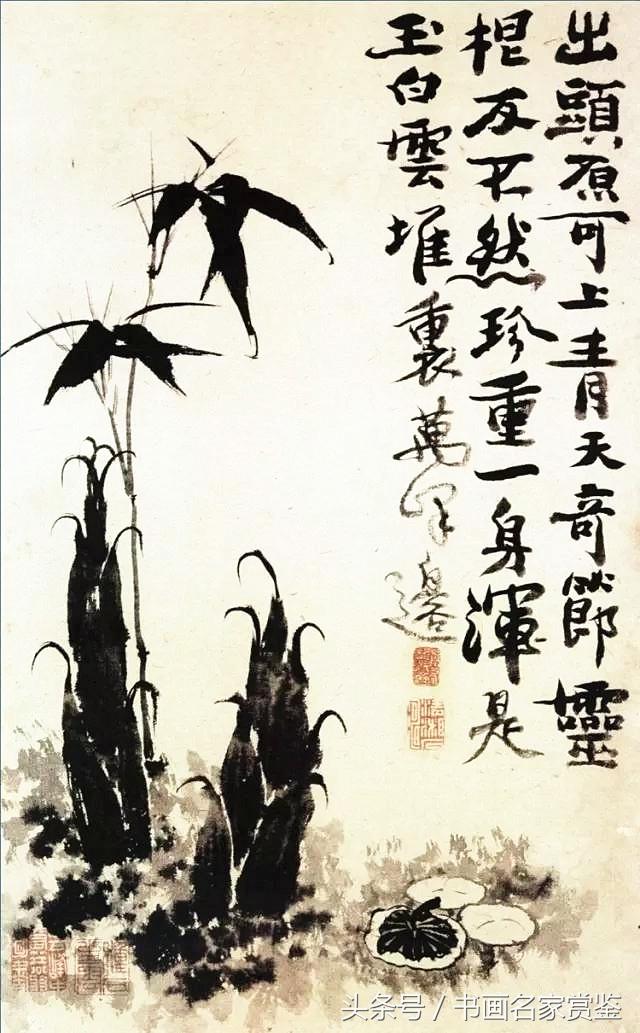 出頭原可上青天奇節靈
根反不然珍重一身渾是
玉白雲堆裏萬邊
头条号 / 书画名家赏鉴